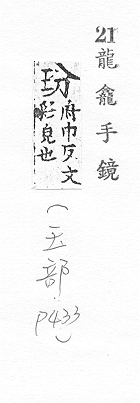 21龍龕手鏡
玢府巾反文
彩皃也
(玉部.
P433)